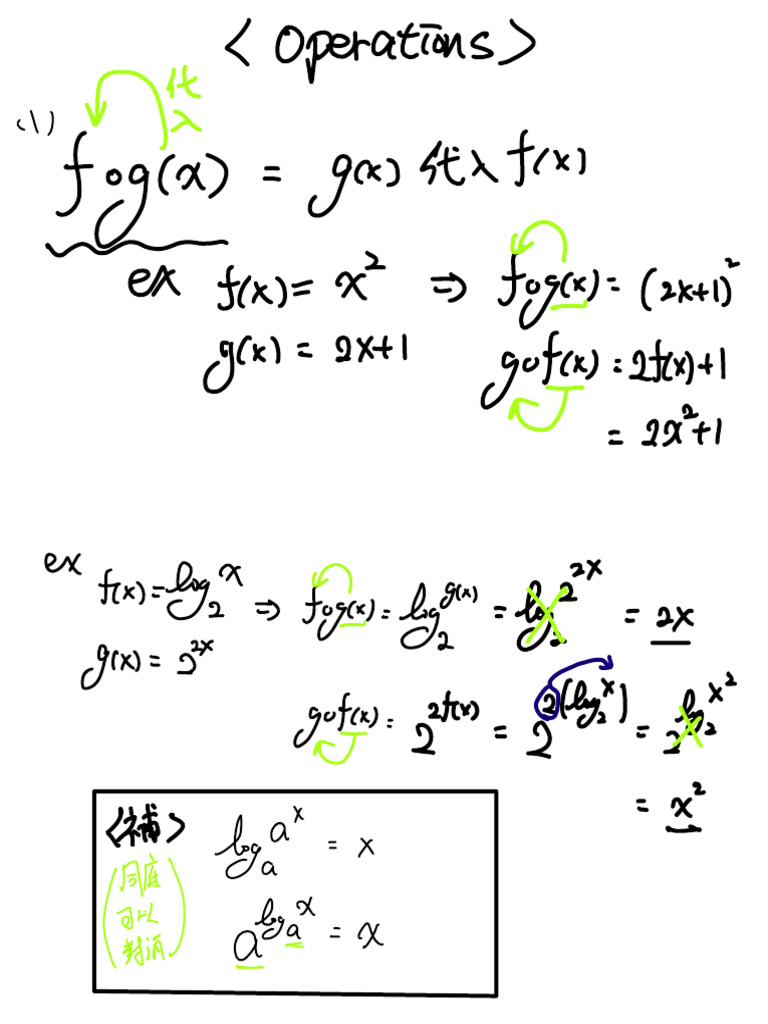 <Operations>
代入
(1) fog(x) = g(x) 代入 f(x)
ex f(x) = x² ⇒ fog(x) = (2x+1)²
g(x) = 2x+1 gof(x) = 2f(x)+1
= 2x²+1
ex f(x) = log₂ˣ ⇒ fog(x) = log₂^g(x) = log₂ 2^2x = 2x
g(x) = 2^2x
gof(x) = 2^2f(x) = 2^2(log₂ˣ) = 2^log₂x² = x²
<補>
(同底可以對消)
logₐ aˣ = x
a^logₐx = x